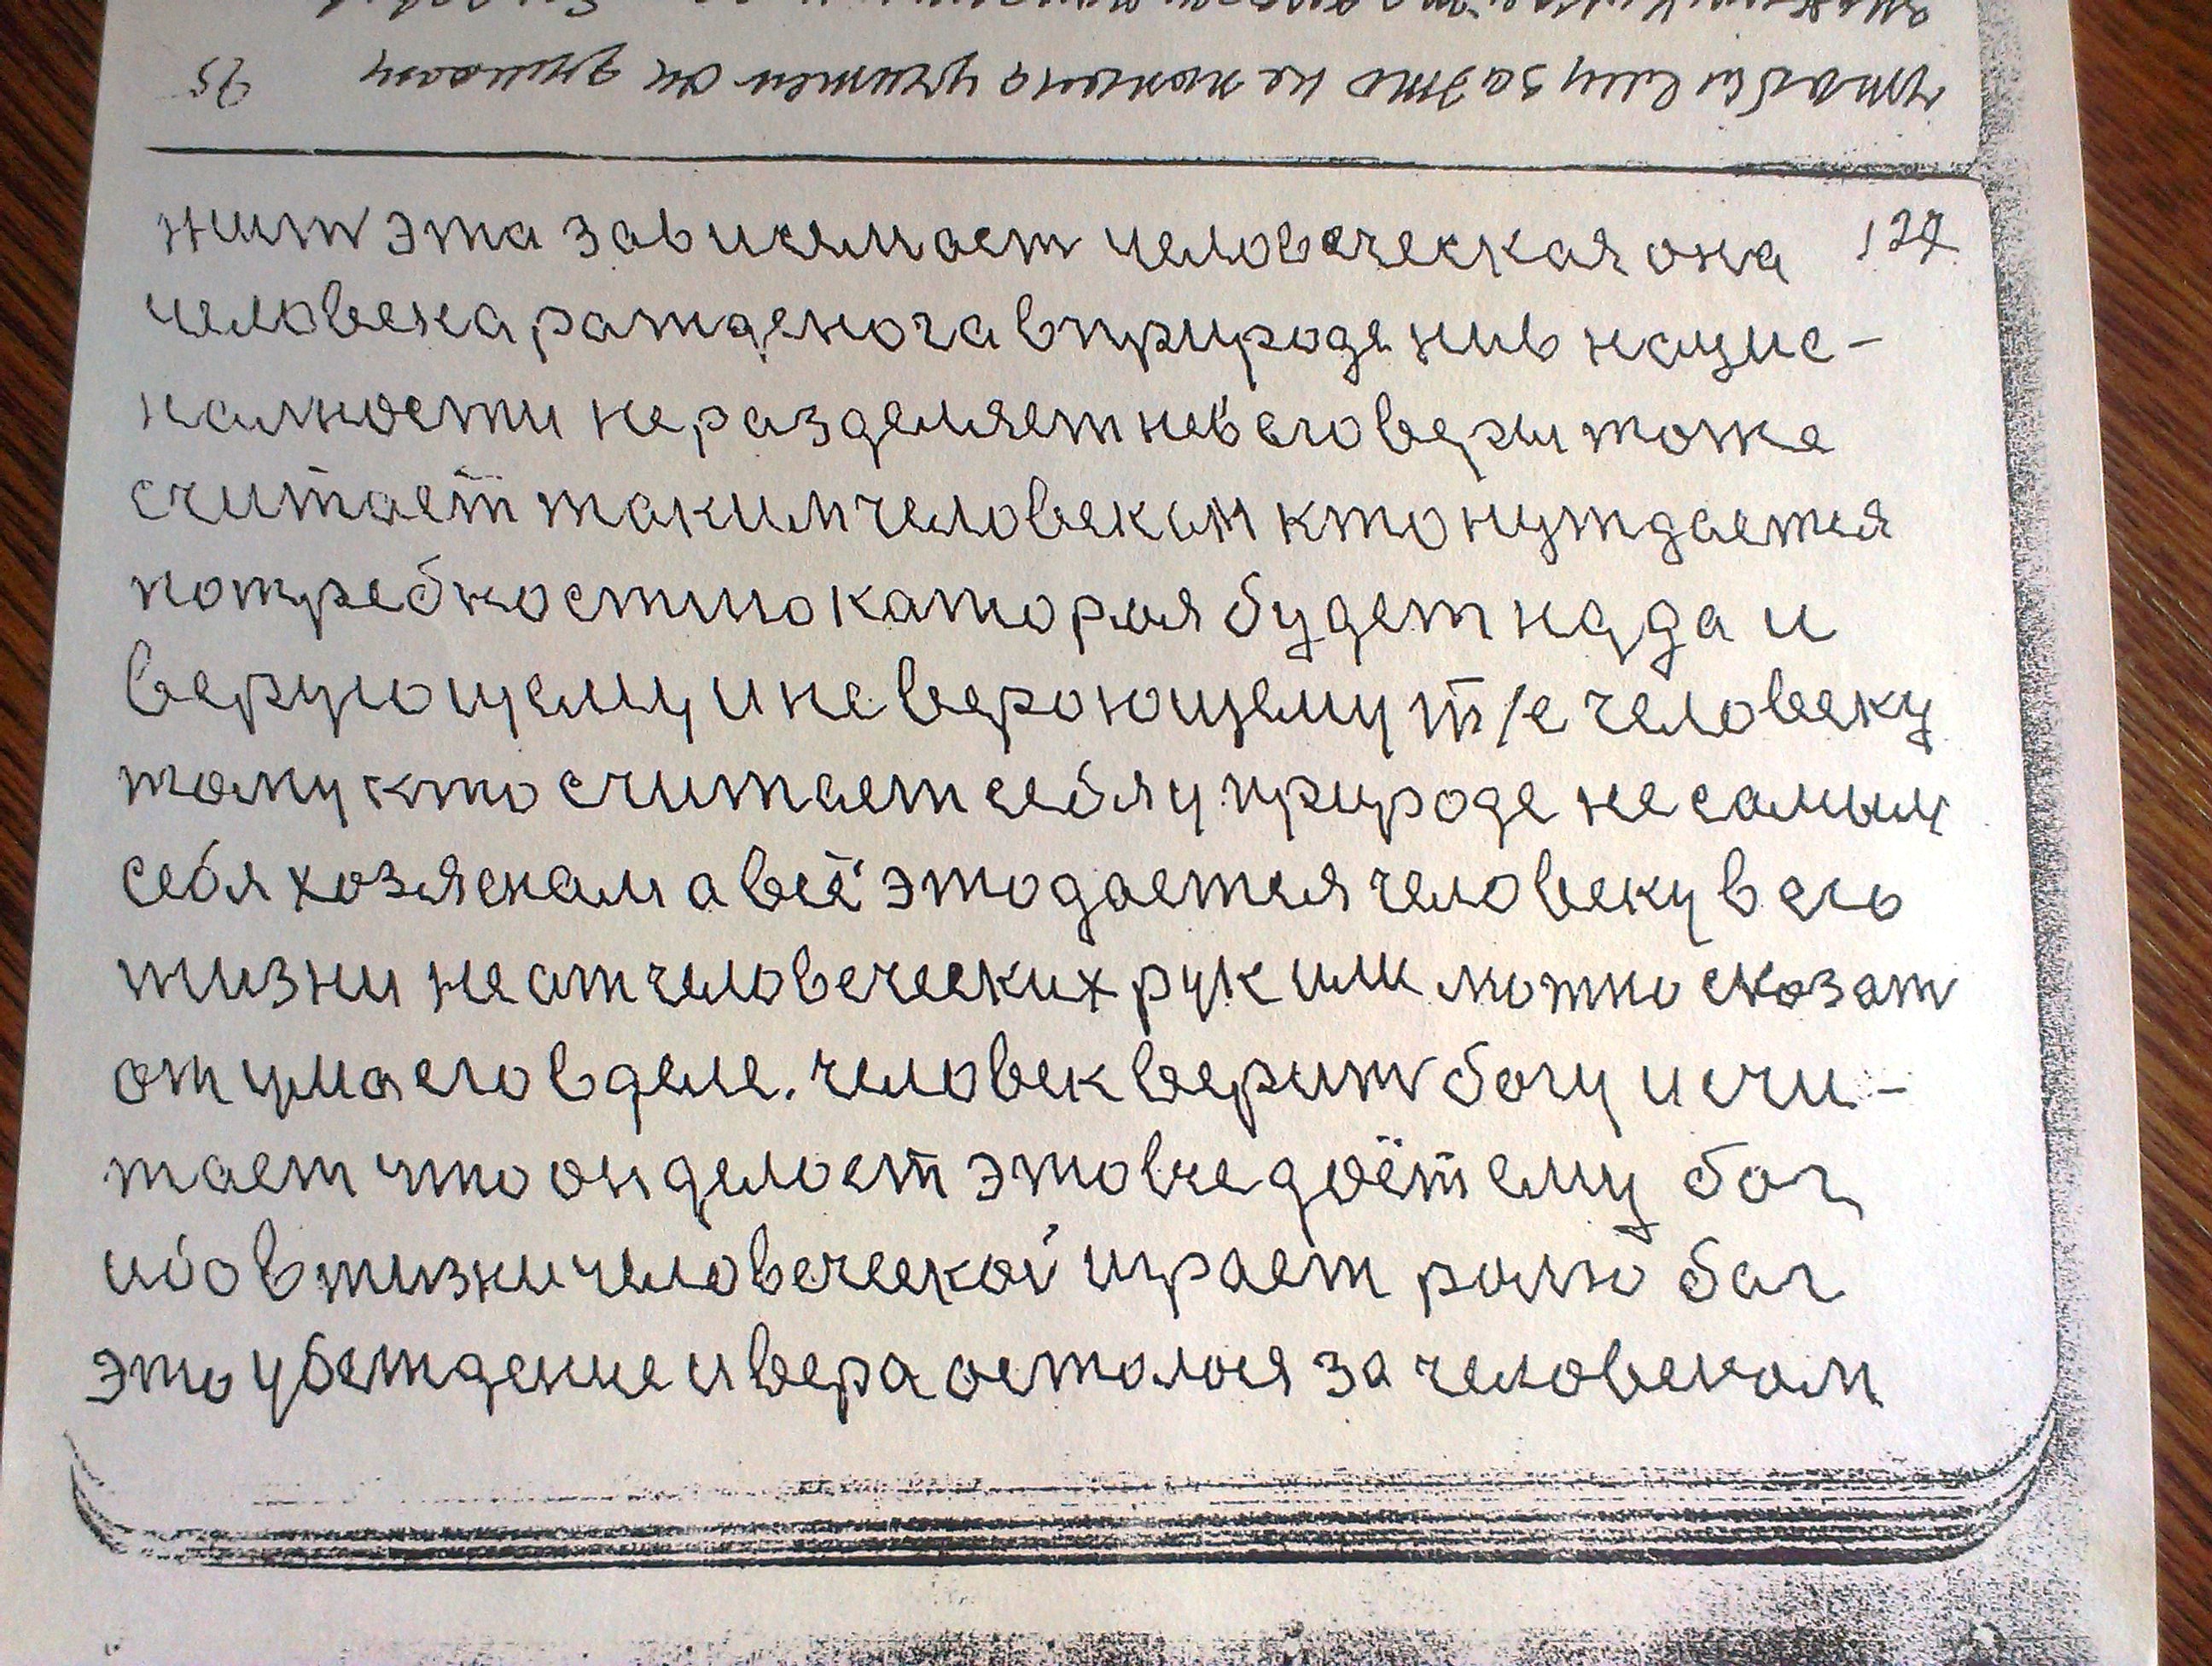 127
жит эта зависемаст человеческая она
человека ражденога вприроде нив нацис-
налности не разделяет нев еговеры тоже
считает таким человеким кто нуждается
потребностию каторая будет надда и
верующему и не вероющему т/е человеку
таму кто считает себя у природе не самым
себя хозяенам а всё это дается человеку в его
жизни не ат человеческих рук или можно сказат
от ума его в деле. человек верит богу и счи-
тает что он делает это все даёт ему бог
ибо в жизни человеческой играет ролю баг
это убеждение и вера осталося за человеком
чтобы ему за это не понто учител он думаст
75